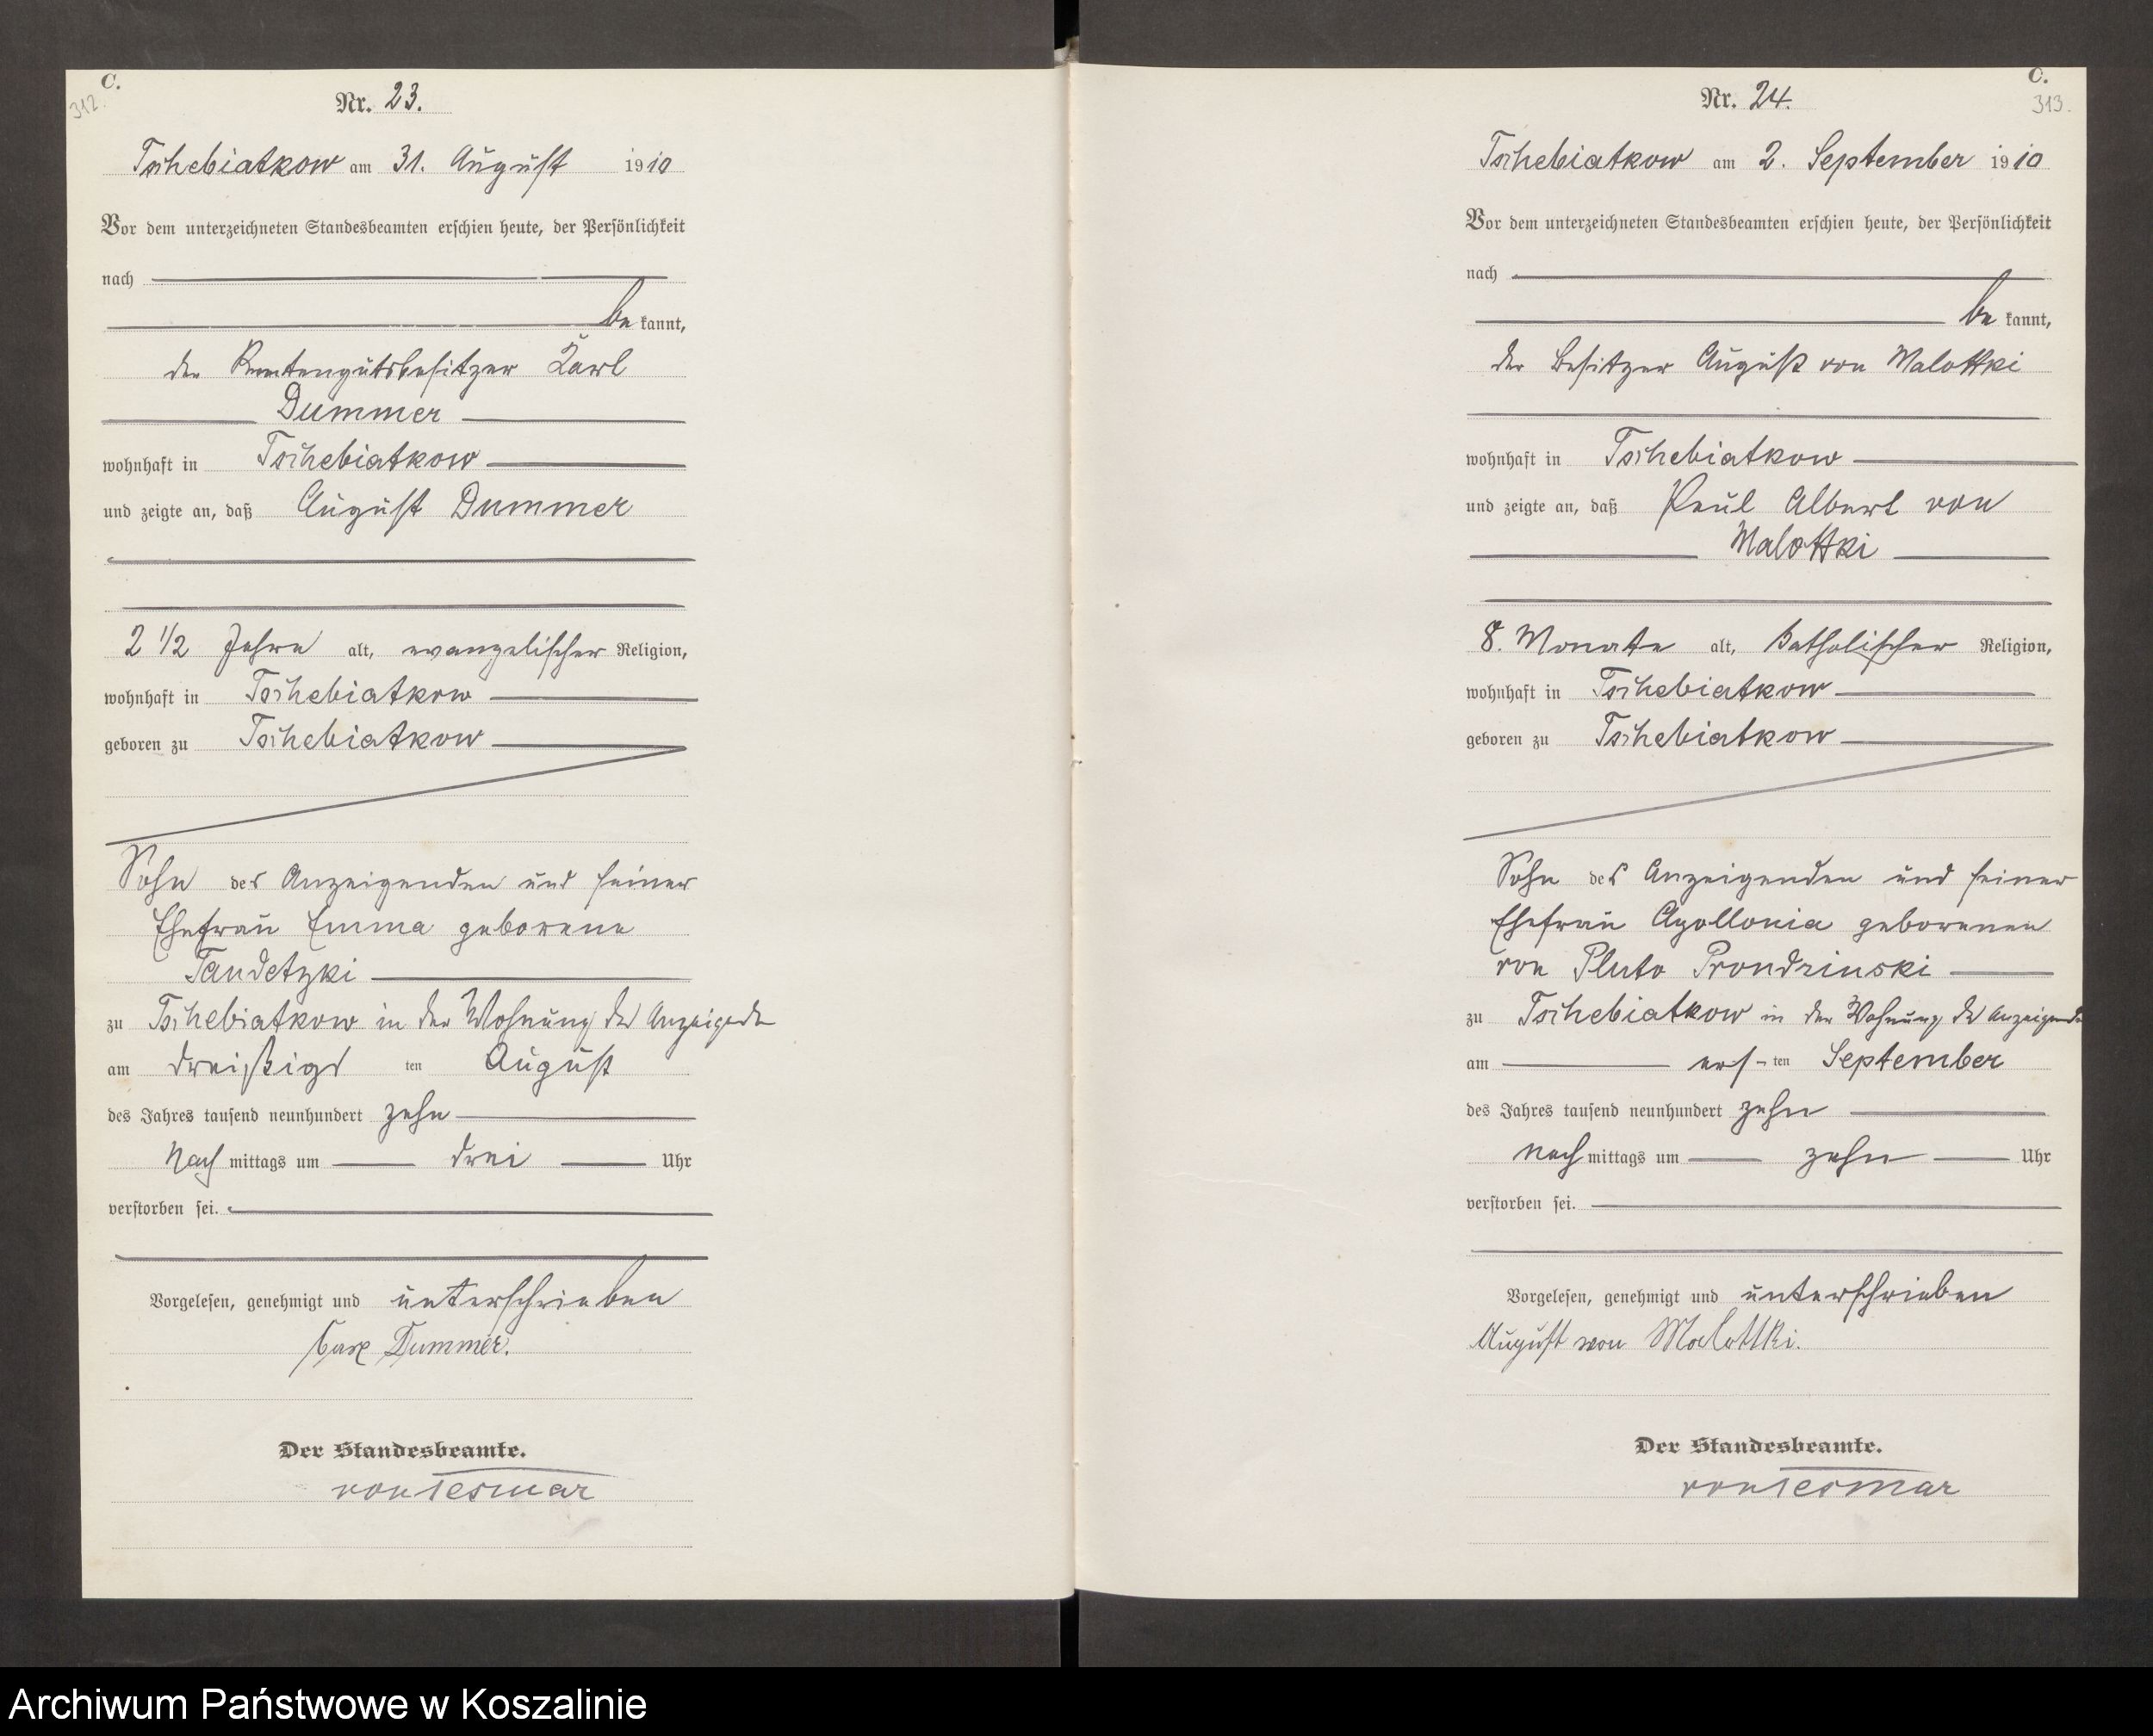 C.
312.
Nr. 23.
Tschebiatkow am 31. August 1910
Vor dem unterzeichneten Standesbeamten erschien heute, der Persönlichkeit
nach
be kannt,
der Rentengutsbesitzer Karl
Dummer
wohnhaft in Tschebiatkow
und zeigte an, daß August Dummer
2 1/2 Jahre alt, evangelischer Religion,
wohnhaft in Tschebiatkow
geboren zu Tschebiatkow
Sohn des Anzeigenden und seiner
Ehefrau Emma geborene
Tandetzki
zu Tschebiatkow in der Wohnung des
am dreißigs ten August
des Jahres tausend neunhundert zehn
Nach mittags um drei Uhr
verstorben sei.
Vorgelesen, genehmigt und unterschrieben
Carl Dummer.
Der Standesbeamte.
von Tesmar
C.
313.
Nr. 24.
Tschebiatkow am 2. September 1910
Vor dem unterzeichneten Standesbeamten erschien heute, der Persönlichkeit
nach
be kannt,
der Besitzer August von Malottki
wohnhaft in Tschebiatkow
und zeigte an, daß Paul Albert von
Malottki
8. Monate alt, katholischer Religion,
wohnhaft in Tschebiatkow
geboren zu Tschebiatkow
Sohn des Anzeigenden und seiner
Ehefrau Apollonia geborenen
von Pluto Prondzinski
zu Tschebiatkow in der Wohnung des
am ers- ten September
des Jahres tausend neunhundert zehn
nach mittags um zehn Uhr
verstorben sei.
Vorgelesen, genehmigt und unterschrieben
August von Malottki.
Der Standesbeamte.
von Tesmar
Archiwum Państwowe w Koszalinie